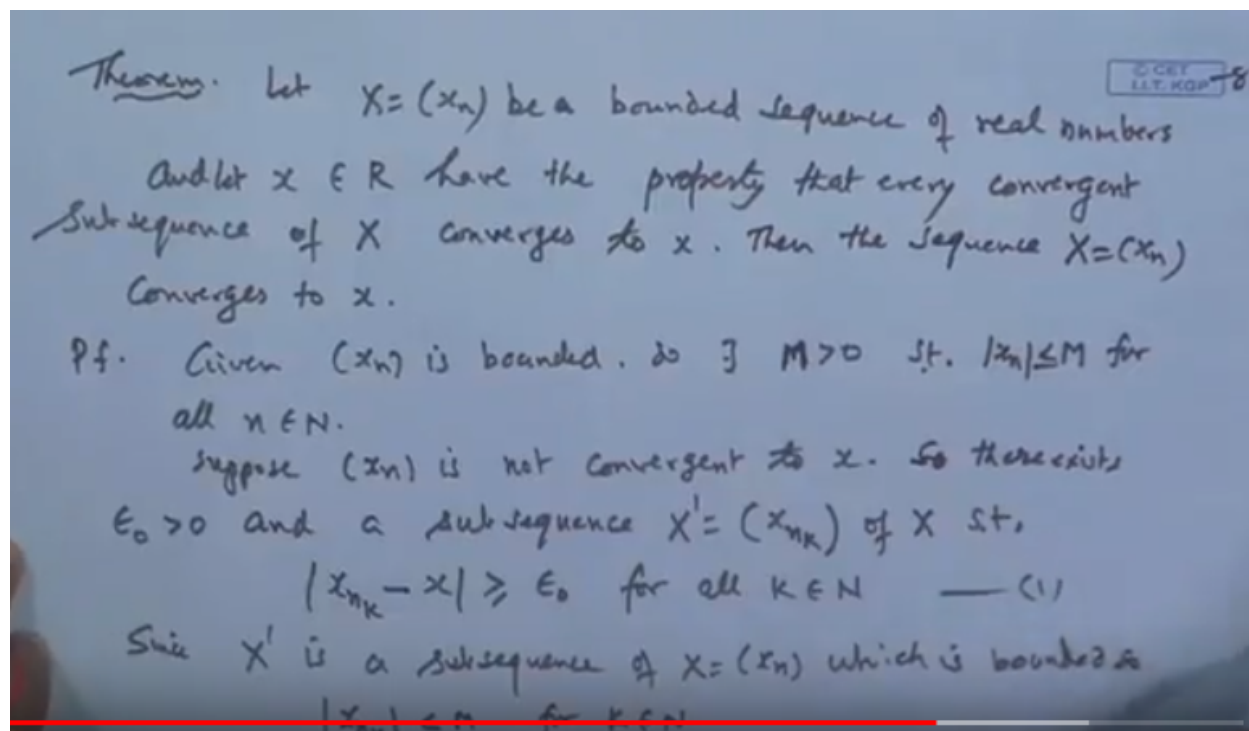 Theorem. Let X = (xn) be a bounded sequence of real numbers
© CET
I.I.T. KGP
-8
And let x ∈ R have the property that every convergent
Subsequence of X converges to x. Then the sequence X=(xn)
Converges to x.
Pf. Given (xn) is bounded. so ∃ M>0 st. |xn|≤M for
all n ∈ N.
Suppose (xn) is not convergent to x. So there exists
ϵ0 >0 and a subsequence X' = (xnk) of X st.
|xnk - x| ≥ ϵ0 for all K ∈ N — (1)
Since X' is a subsequence of X = (xn) which is bounded so
|xnk| ≤ M for K ∈ N